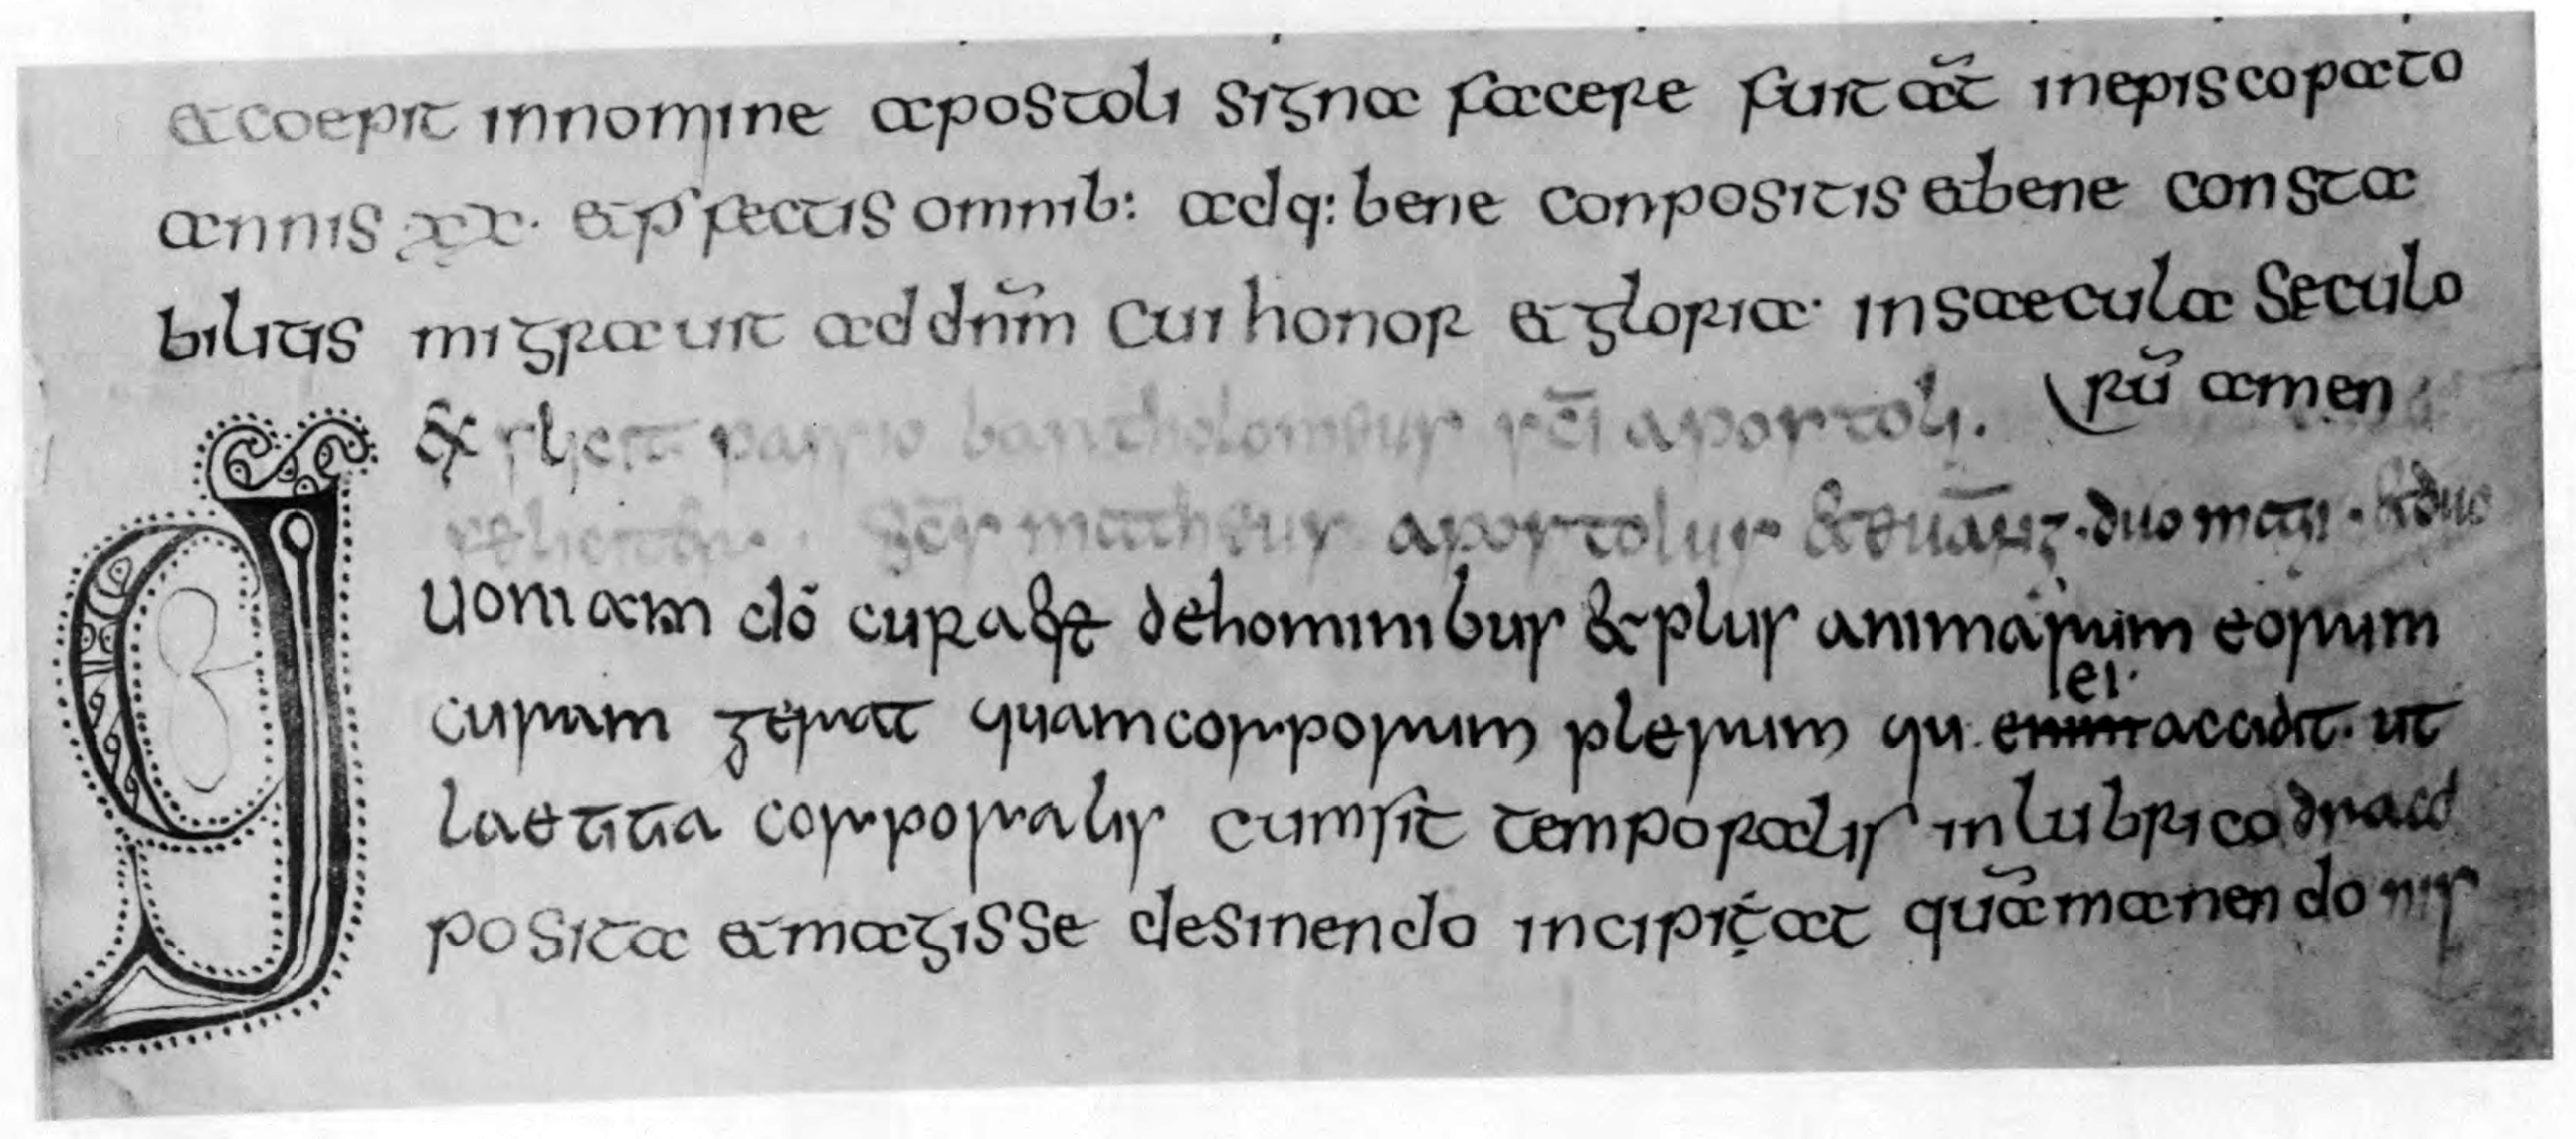 & coepit in nomine apostoli signa facere fuit aut̃ in episcopato
annis xx. & pfectis omnib: adq: bene conpositis & bene consta
bilitis migrauit ad dnm̃ cui honor & gloria· in saecula seculo
rũ amen
& passio bartholomeus sc̄i apostoli.
sc̄s matheus apostolus & euang. duo &duo
Quoniam dõ cura est de hominibus & plus animarum eorum
curam gerat quam corporum plerumque
ei·
enim accidit. ut
laetitia corporalis cum sit temporalis in lubrico
posita & magis se desinendo incipitat quã manendo